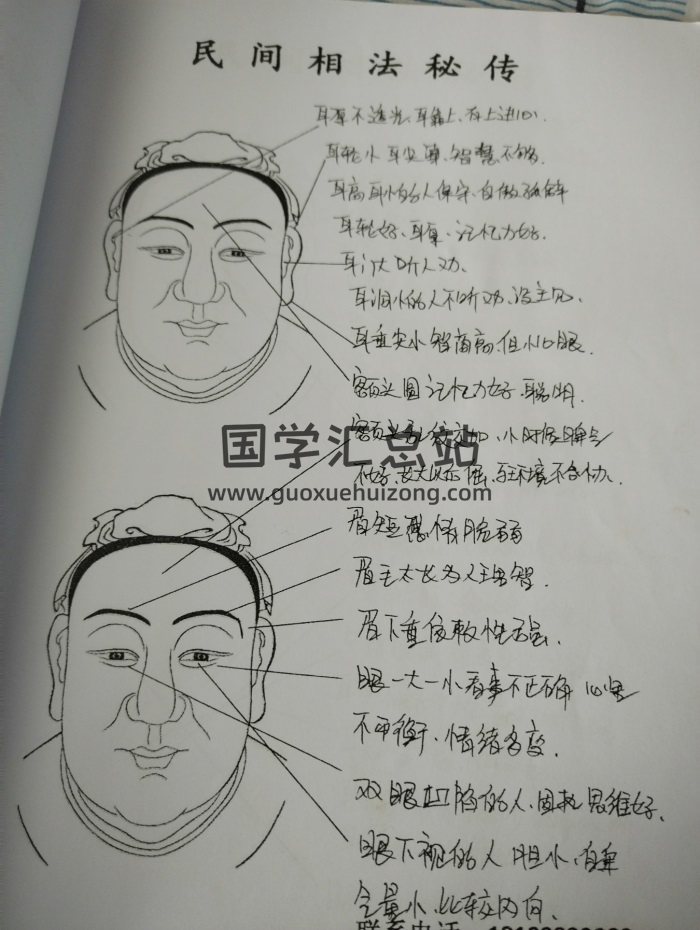 民间相法秘传
耳厚不透光、耳靠上、有上进心.
耳轮小 耳尖薄, 智慧不够.
耳高耳小的人保守、自傲孤僻
耳轮好、耳厚、记忆力好.
耳大听人劝.
耳洞小的人不听劝、没主见.
耳垂尖小智商高、但小心眼.
额头圆记忆力好、聪明.
额头乱纹交加、小时候
不好、长大以后倔、与环境不合协.
国学汇总站
www.guoxuehuizong.com
眉短感情脆弱
眉毛太长为人主智.
眉下垂依赖性强.
眼一大一小看事不正确 心里
不平衡、情绪多变.
双眼凹陷的人、固执思维好.
眼下视的人 胆小、自尊
含量小、比较内向.
联系电话